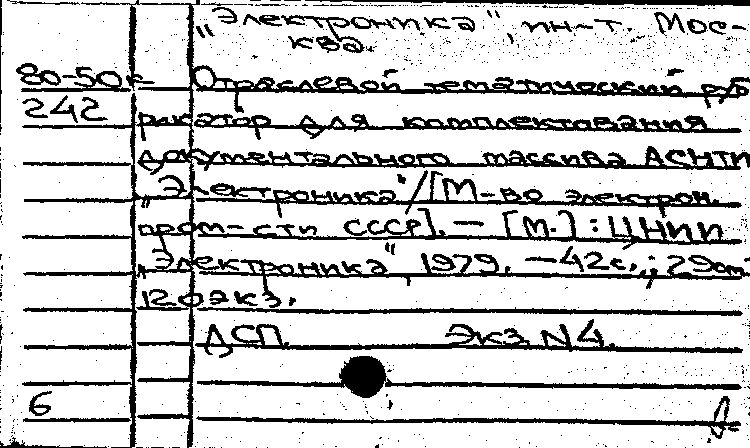 „Электроника", ин-т. Мос-
ква.
80-50к Отраслевой тематический руб
242 рикатор для комплектования
документального массива АСНТИ
„Электроника"/[М-во электрон.
пром-сти СССР]. — [М.] : ЦНИИ
„Электроника", 1979. — 42с.; 29см
120экз.
ДСП. Экз. N4.
6